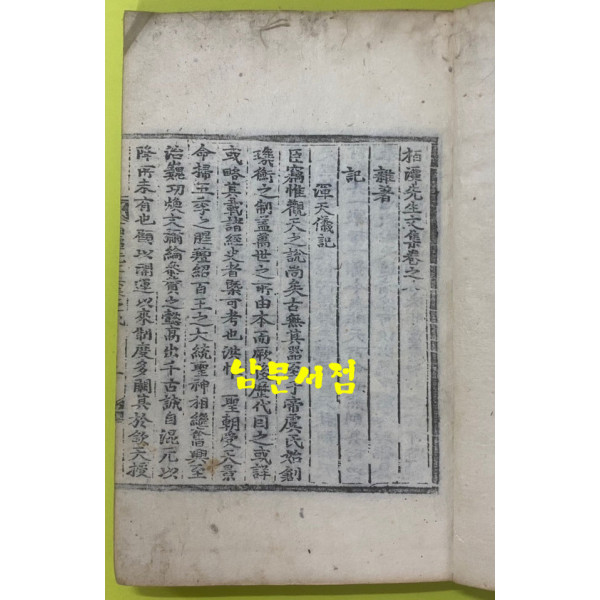 栢潭先生文集卷之六
雜著
記
渾天儀記
臣竊惟觀天之說尚矣古無其器至于帝虞氏始創
璣衡之制蓋萬世之所由本而厥後歷代因之或詳
或略其載諸經史者槩可考也洪惟 聖朝受天景
命掃五季之腥羶紹百王之大統聖神相繼奮興至
治巍功煥文彌綸參贊之懿高出千古誠自混元以
降所未有也顧以謝運以來制度多闕其於欽天授
남문서점